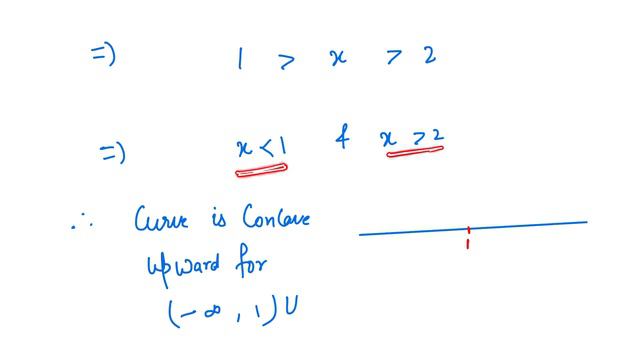 => 1 > x > 2
=> x < 1 & x > 2
∴ Curve is Concave
upward for
(-∞, 1) U
1